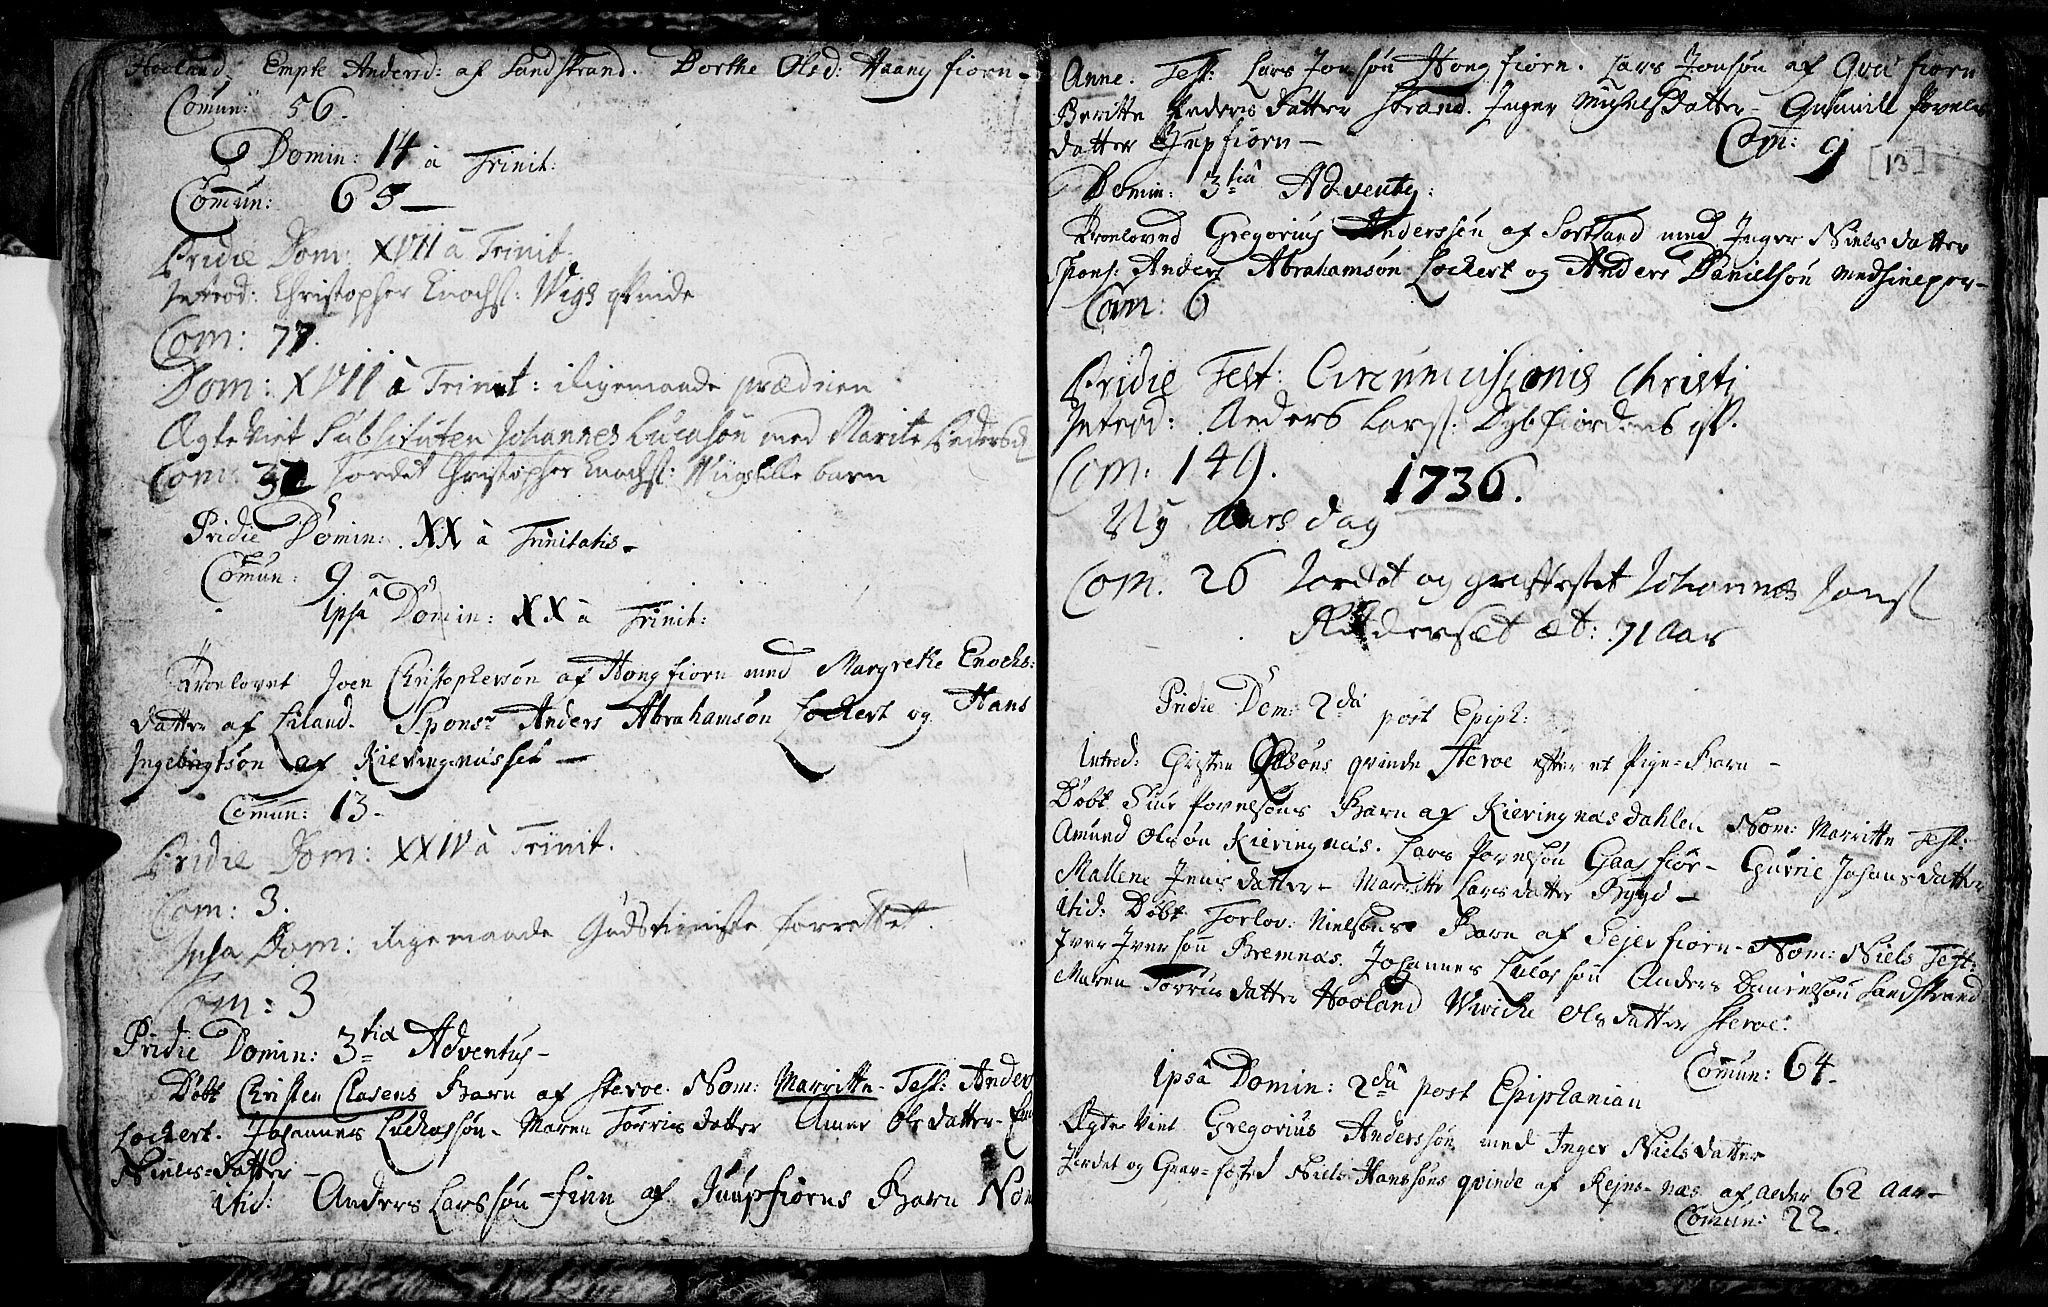 Hooland. Empte Andersd: af Sandstrand. Dorthe Olsd: Haangfiorn-
Comun: 56.
Domin: 14 à Trinit:
Comun: 65-
Pridie Dom: XVII à Trinit.
Introd: Christopher Enochs: Wigs qvinde
Com: 77.
Dom: XVII à Trinit: iligemaade prædiken
Ægte Viet Substituten Johannes Lucasøn med Marite Pedersd
Com: 37 Jordet Christopher Enochs: barn
Pridie Domin: XX à Trinitatis-
Comun: 9
Ipsa Domin: XX à Trinit:
Troelovet Joen Christophersøn af Hongfiorn med Margrethe Enochs:
datter af Eiland. Spons: Anders Abrahamsøn Lockert og Hans
Ingebrigtsøn af Kieringnæsset-
Comun: 13-
Pridie Dom: XXIV à Trinit.
Com: 3.
Ipsa Dom: iligemaade Gudstieniste forrettet.
Com: 3
Pridie Domin: 3tia Adventus-
Døbt Christen Clasens Barn af Steroe. Nom: Marritte- Test: Anders
Lockert. Johannes Ludvassøn- Maren Torrisdatter Anne Olsdatter-
Niels-datter-
itid: Anders Larssøn finn af Juupfiorns Barn Nom
Anne. Test: Lars Jonsøn Hongfiorn. Lars Jonsøn af
Beritte Pedersdatter Strand. Inger Michelsdatter- Gunnild Povels
datter Jupfiorn-
Com: 9 [13]
Domin: 3tia Adventg:
Troeloved Gregorius Anderssøn af Sortland med Inger Nielsdatter
Spons: Anders Abrahamsøn Lockert og Anders Danielsøn
Com: 6
Pridie Fest: Circumcisionis Christi
Introd: Anders Lars: Dybfiordens qv.
Com: 149.
1736.
Ny Aars dag
Com: 26 Jordet og graffæstet Johannes Jons
æt: 71 Aar
Pridie Dom: 2da post Epiph:
Introd: Christen Olsøns qvinde Steroe efter et Pige-Barn-
Døbt Siur Povelsøns Barn af Kieringnæsdahlen Nom: Marritte Test:
Amund Olsøn Kieringnæs. Lars Povelsøn Gaasfior- Gurnie Johansdatter
Mallene Jensdatter- Marritte Larsdatter Bygd-
itid: Døbt Torlov: Nielsøns Barn af Sejerfiorn- Nom: Niels Test:
Iver Iversøn Bremnæs. Johannes Lucassøn Anders Danielsøn Sandstrand
Maren Torrisdatter Hooland Wiviche Olsdatter Steroe:
Comun: 64-
Ipsâ Domin: 2dâ post Epiphanian
Ægte Viet Gregorius Anderssøn med Inger Nielsdatter
Jordet og Grav-fæsted Niels Hanssøns qvinde af Rejns-næs af alder 62 Aar-
Comun: 22.